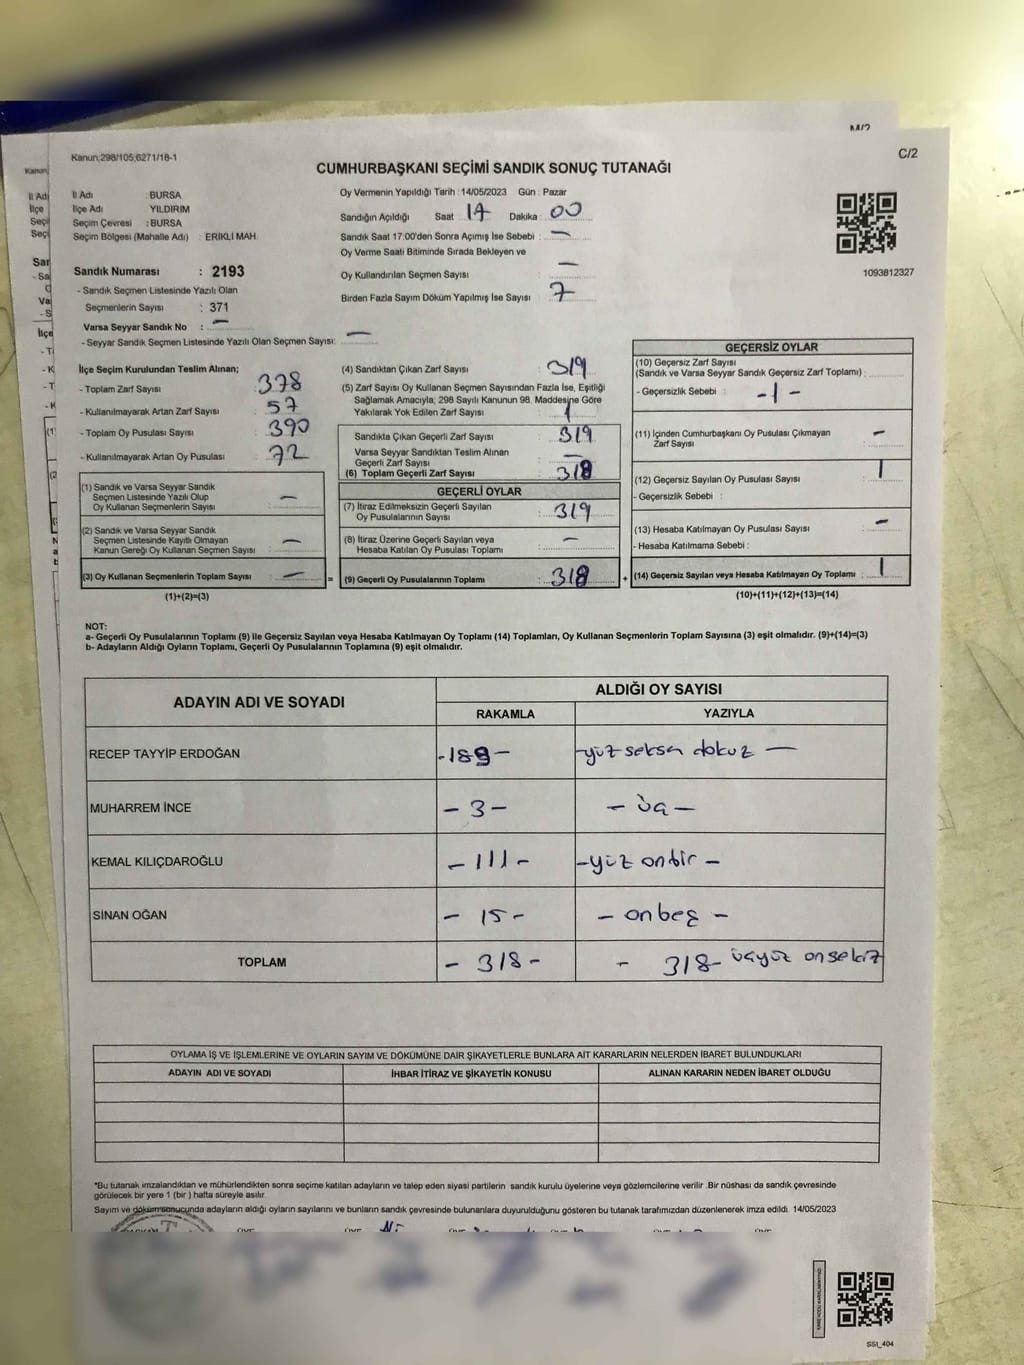 M/2
Kanun;298/105;6271/18-1
C/2
CUMHURBAŞKANI SEÇİMİ SANDIK SONUÇ TUTANAĞI
İl Adı : BURSA
İlçe Adı : YILDIRIM
Seçim Çevresi : BURSA
Seçim Bölgesi (Mahalle Adı) : ERİKLİ MAH.
Sandık Numarası : 2193
- Sandık Seçmen Listesinde Yazılı Olan
Seçmenlerin Sayısı : 371
Varsa Seyyar Sandık No : —
- Seyyar Sandık Seçmen Listesinde Yazılı Olan Seçmen Sayısı: —
Oy Vermenin Yapıldığı Tarih : 14/05/2023 Gün : Pazar
Sandığın Açıldığı Saat : 17 Dakika : 00
Sandık Saat 17:00'den Sonra Açımış İse Sebebi : —
Oy Verme Saati Bitiminde Sırada Bekleyen ve
Oy Kullandırılan Seçmen Sayısı : —
Birden Fazla Sayım Döküm Yapılmış İse Sayısı : 7
1093812327
İlçe Seçim Kurulundan Teslim Alınan;
- Toplam Zarf Sayısı : 378
- Kullanılmayarak Artan Zarf Sayısı : 57
- Toplam Oy Pusulası Sayısı : 390
- Kullanılmayarak Artan Oy Pusulası : 72
(1) Sandık ve Varsa Seyyar Sandık
Seçmen Listesinde Yazılı Olup
Oy Kullanan Seçmenlerin Sayısı : —
(2) Sandık ve Varsa Seyyar Sandık
Seçmen Listesinde Kayıtlı Olmayan
Kanun Gereği Oy Kullanan Seçmen Sayısı : —
(3) Oy Kullanan Seçmenlerin Toplam Sayısı : — =
(1)+(2)=(3)
(4) Sandıktan Çıkan Zarf Sayısı : 319
(5) Zarf Sayısı Oy Kullanan Seçmen Sayısından Fazla İse, Eşitliği
Sağlamak Amacıyla; 298 Sayılı Kanunun 98. Maddesine Göre
Yakılarak Yok Edilen Zarf Sayısı : 1
Sandıkta Çıkan Geçerli Zarf Sayısı : 319
Varsa Seyyar Sandıktan Teslim Alınan
Geçerli Zarf Sayısı : —
(6) Toplam Geçerli Zarf Sayısı : 318
GEÇERLİ OYLAR
(7) İtiraz Edilmeksizin Geçerli Sayılan
Oy Pusulalarının Sayısı : 319
(8) İtiraz Üzerine Geçerli Sayılan veya
Hesaba Katılan Oy Pusulası Toplamı : —
(9) Geçerli Oy Pusulalarının Toplamı : 318 +
GEÇERSİZ OYLAR
(10) Geçersiz Zarf Sayısı
(Sandık ve Varsa Seyyar Sandık Geçersiz Zarf Toplamı) :
- Geçersizlik Sebebi : -1-
(11) İçinden Cumhurbaşkanı Oy Pusulası Çıkmayan
Zarf Sayısı : —
(12) Geçersiz Sayılan Oy Pusulası Sayısı : 1
- Geçersizlik Sebebi :
(13) Hesaba Katılmayan Oy Pusulası Sayısı : —
- Hesaba Katılmama Sebebi :
(14) Geçersiz Sayılan veya Hesaba Katılmayan Oy Toplamı : 1
(10)+(11)+(12)+(13)=(14)
NOT:
a- Geçerli Oy Pusulalarının Toplamı (9) ile Geçersiz Sayılan veya Hesaba Katılmayan Oy Toplamı (14) Toplamları, Oy Kullanan Seçmenlerin Toplam Sayısına (3) eşit olmalıdır. (9)+(14)=(3)
b- Adayların Aldığı Oyların Toplamı, Geçerli Oy Pusulalarının Toplamına (9) eşit olmalıdır.
ADAYIN ADI VE SOYADI
ALDIĞI OY SAYISI
RAKAMLA YAZIYLA
RECEP TAYYİP ERDOĞAN -189- -yüz seksen dokuz —
MUHARREM İNCE -3- - üç -
KEMAL KILIÇDAROĞLU -111- -yüz onbir -
SİNAN OĞAN - 15 - - onbeş -
TOPLAM - 318 - - 318- üçyüz onsekiz
OYLAMA İŞ VE İŞLEMLERİNE VE OYLARIN SAYIM VE DÖKÜMÜNE DAİR ŞİKAYETLERLE BUNLARA AİT KARARLARIN NELERDEN İBARET BULUNDUKLARI
ADAYIN ADI VE SOYADI İHBAR İTİRAZ VE ŞİKAYETİN KONUSU ALINAN KARARIN NEDEN İBARET OLDUĞU
*Bu tutanak imzalandıktan ve mühürlendikten sonra seçime katılan adayların ve talep eden siyasi partilerin sandık kurulu üyelerine veya gözlemcilerine verilir .Bir nüshası da sandık çevresinde
görülecek bir yere 1 (bir ) hafta süreyle asılır.
Sayım ve döküm sonucunda adayların aldığı oyların sayılarını ve bunların sandık çevresinde bulunanlara duyurulduğunu gösteren bu tutanak tarafımızdan düzenlenerek imza edildi. 14/05/2023
SSI_404